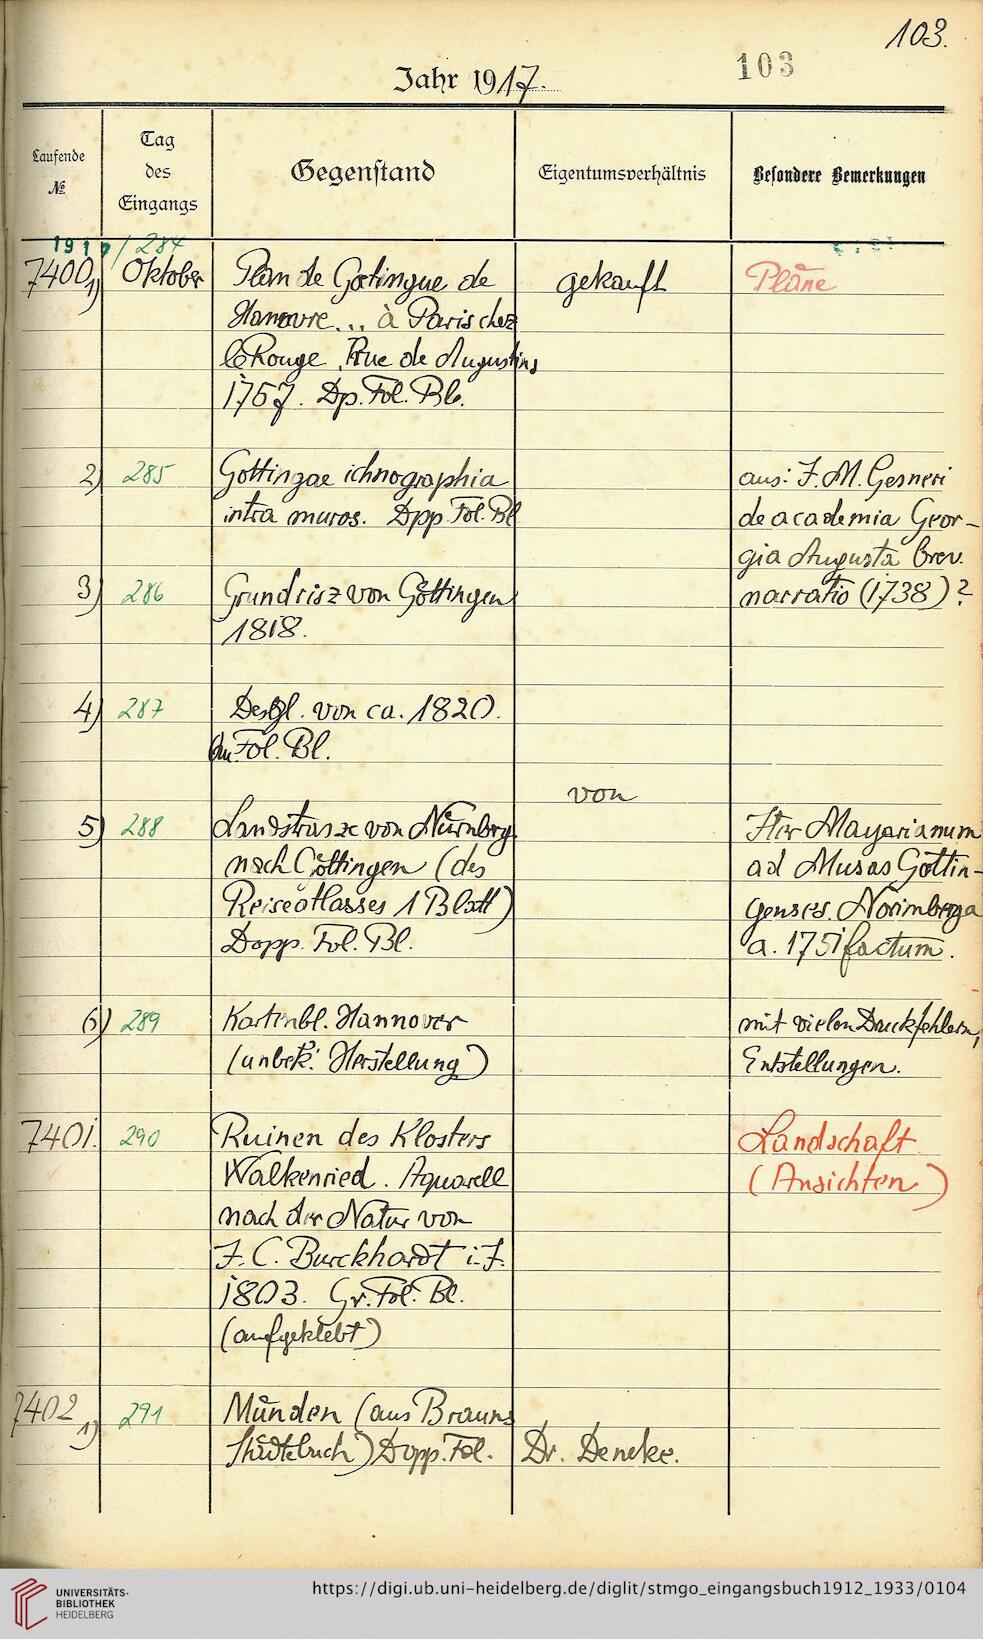 103.
103
Jahr 1917.
Laufende
№
Tag
des
Eingangs
Gegenstand
Eigentumsverhältnis
Besondere Bemerkungen
1917/284
7400 1) Oktober Plan de Gœtingue de gekauft Pläne
Hanovre... à Paris chez
le Rouge, Rue de Augustins,
1757. Dp. Fol. Bl.
2) 285 Gottingae ichnographia aus: J. M. Gesneri
intra muros. Dpp. Fol. Bl de academia Geor-
gia Augusta brev.
3) 286 Grundrisz von Göttingen narratio (1738)?
1818.
4) 287 Desgl. von ca. 1820.
Fol. Bl.
von
5) 288 Landstrasze von Nürnberg Iter Mayerianum
nach Göttingen (des ad Musas Göttin-
Reiseatlasses 1 Blatt) genses. Norimberga
Dopp. Fol. Bl. a. 1751 factum.
6) 289 Kartenbl. Hannover mit vielen Druckfehlern,
(unbek. Herstellung) Entstellungen.
7401. 290 Ruinen des Klosters Landschaft
Walkenried. Aquarell (Ansichten)
nach der Natur von
J. C. Burckhardt i. J.
1803. Gr. Fol. Bl.
(aufgeklebt)
7402 1) 291 Münden (aus Brauns
Städtebuch) Dopp. Fol. Dr. Deneke.
UNIVERSITÄTS-
BIBLIOTHEK
HEIDELBERG
https://digi.ub.uni-heidelberg.de/diglit/stmgo_eingangsbuch1912_1933/0104